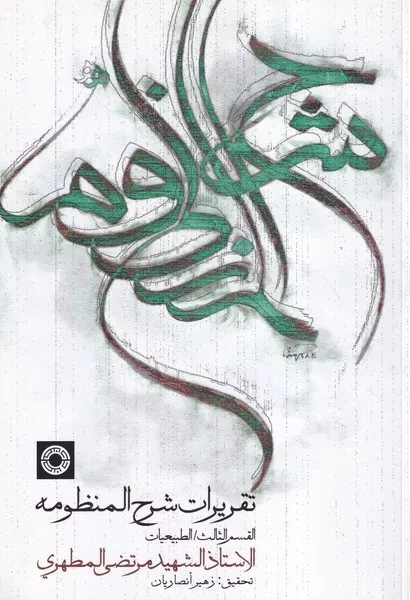 شرح المنظومه
تقريرات شرح المنظومه
القسم الثالث/الطبيعيات
الاستاذ الشهيد مرتضى المطهري
تحقيق: زهير أنصاريان